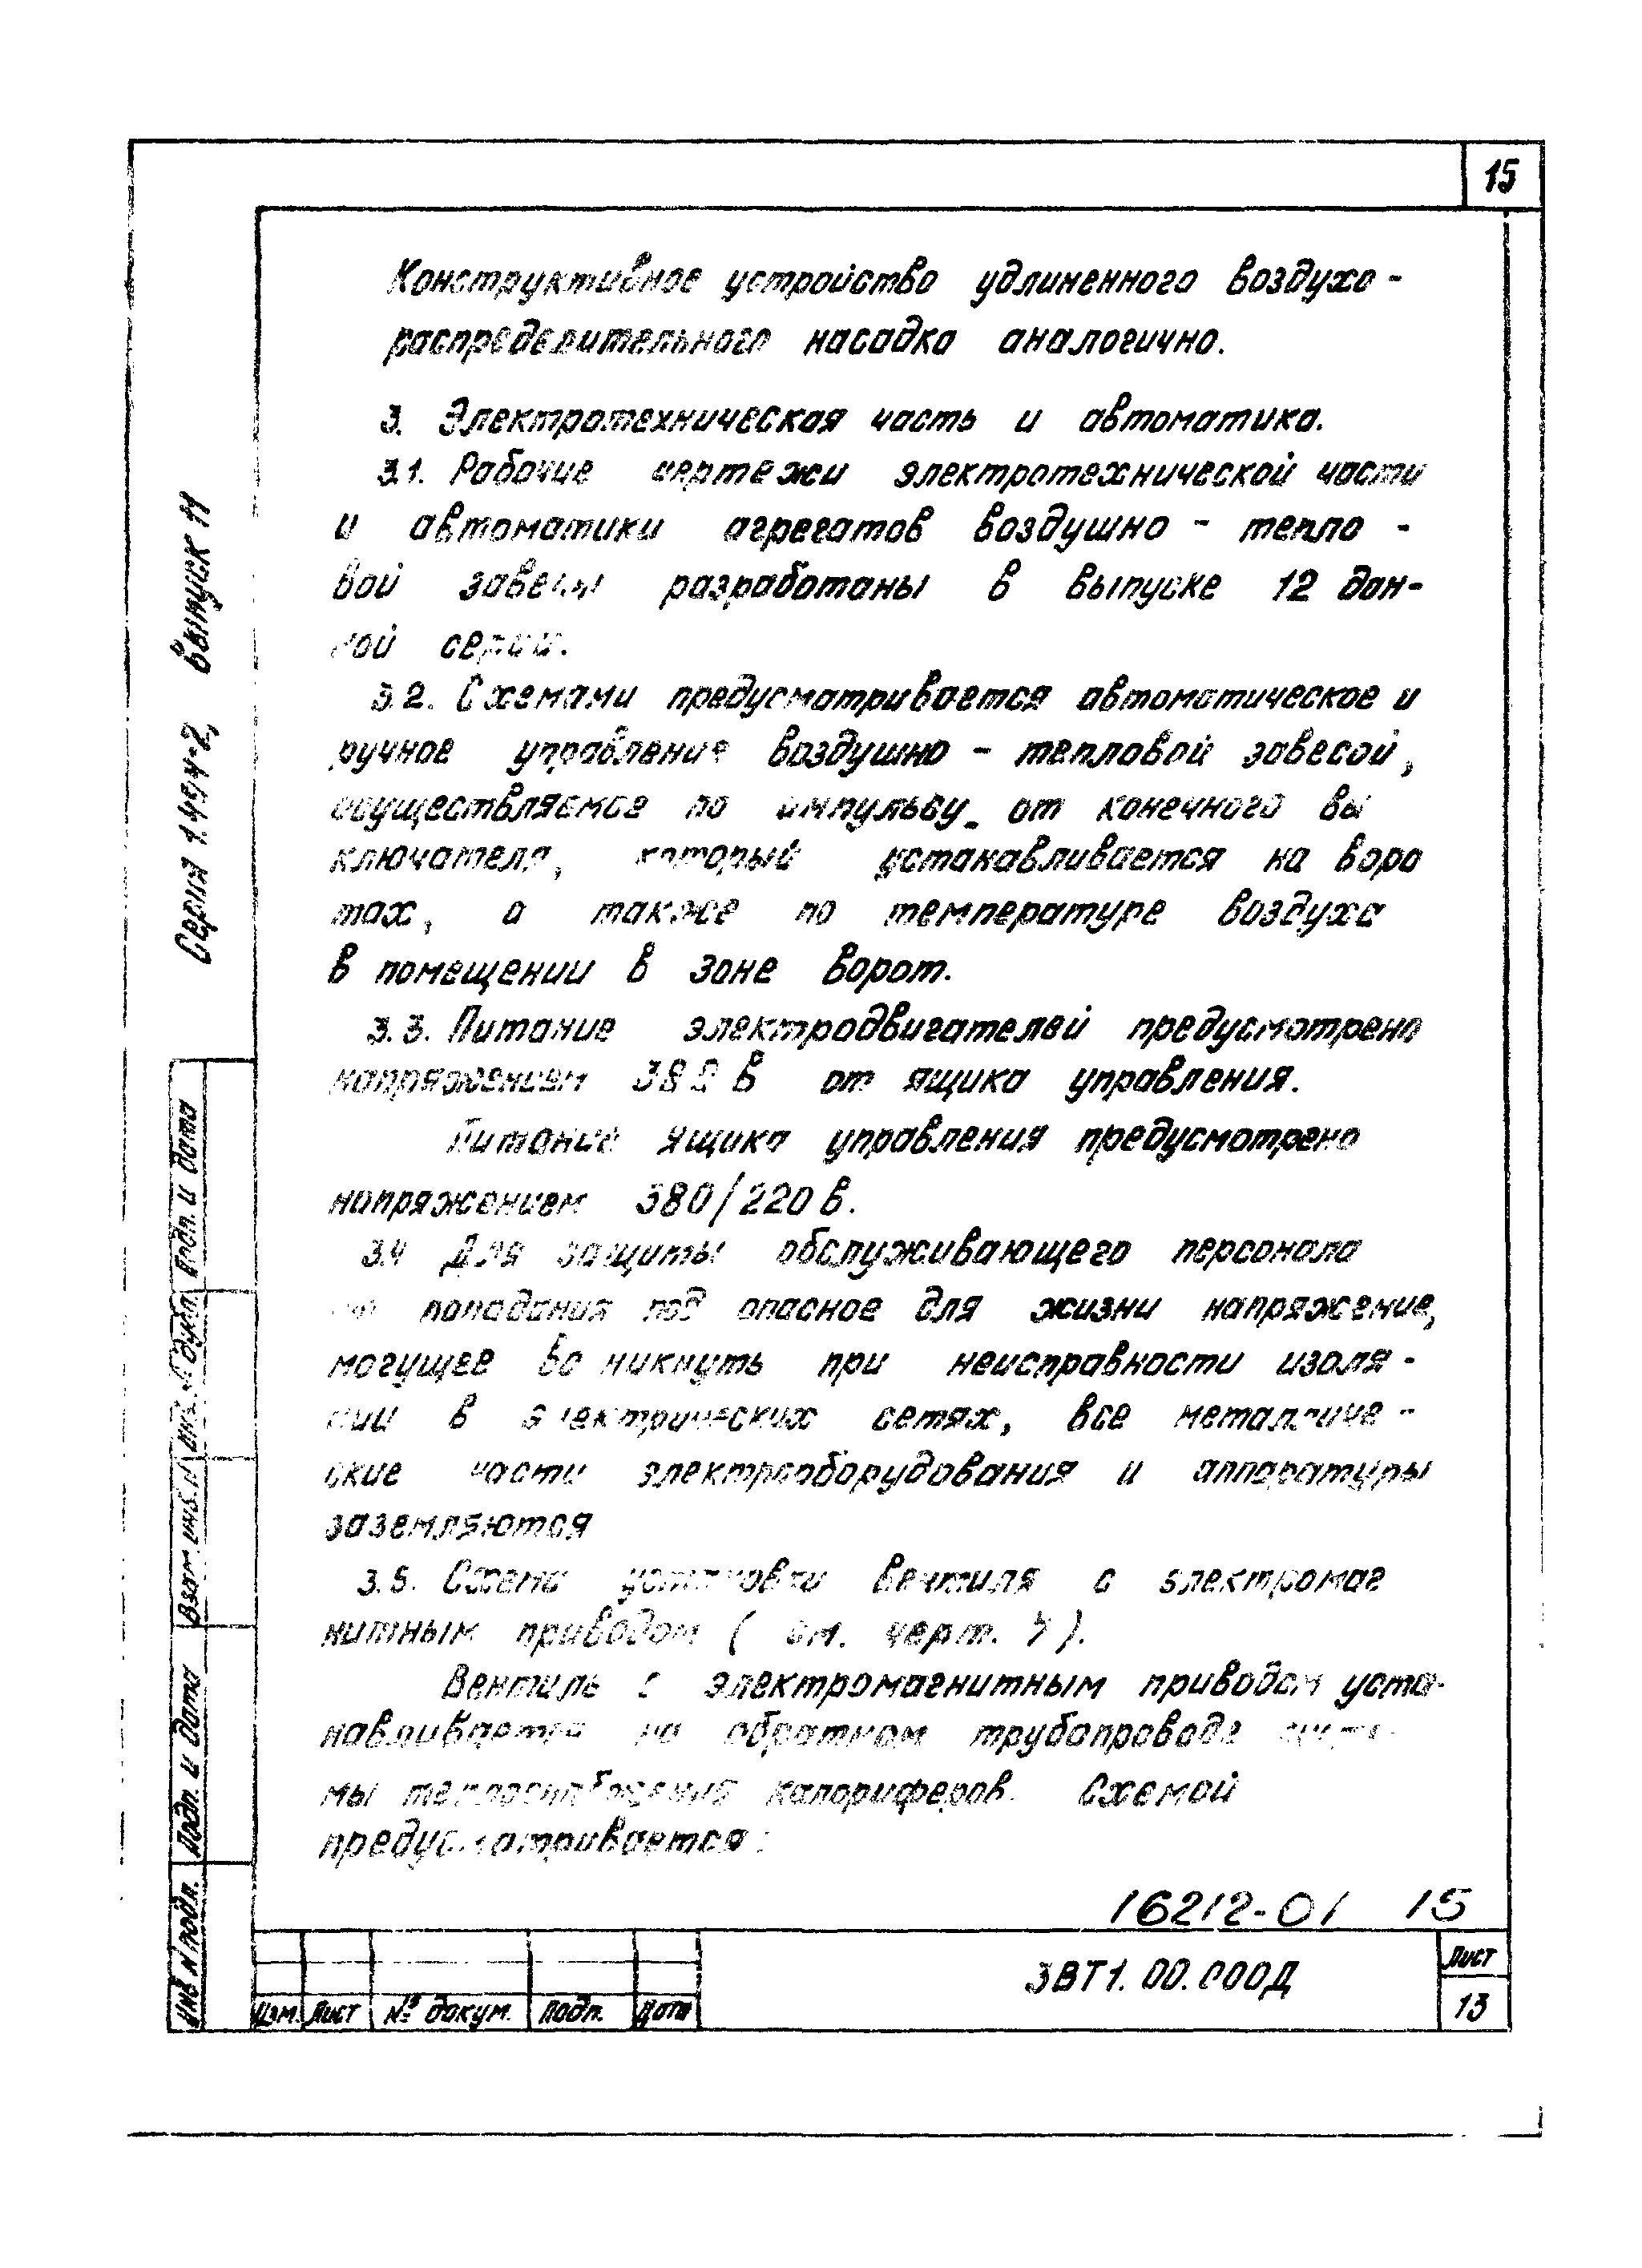 15
Конструктивное устройство удлиненного воздухо-
распределительного насадка аналогично.
3. Электротехническая часть и автоматика.
3.1. Рабочие чертежи электротехнической части
и автоматики агрегатов воздушно - тепло -
вой завесы разработаны в выпуске 12 дан-
ной серии.
3.2. Схемами предусматривается автоматическое и
ручное управление воздушно - тепловой завесой,
осуществляемое по импульсу от конечного вы
ключателя, который устанавливается на воро
тах, а также по температуре воздуха
в помещении в зоне ворот.
3.3. Питание электродвигателей предусмотрено
напряжением 380 В от ящика управления.
Питание ящика управления предусмотрено
напряжением 380/220 В.
3.4 Для защиты обслуживающего персонала
от попадания под опасное для жизни напряжение,
могущее возникнуть при неисправности изоля -
ции в электрических сетях, все металличе -
ские части электрооборудования и аппаратуры
заземляются
3.5. Схема установки вентиля с электромаг
нитным приводом ( см. черт. ).
Вентиль с электромагнитным приводом уста-
навливается на обратном трубопроводе систе-
мы теплоснабжения калориферов. Схемой
предусматривается:
16212-01 15
ЗВТ1.00.000Д
Лист
13
Изм. Лист № докум. Подп. Дата
Серия 1.494-2, выпуск 11
Подп. и дата
Инв. № дубл.
Взам. инв. №
Подп. и дата
Инв № подл.